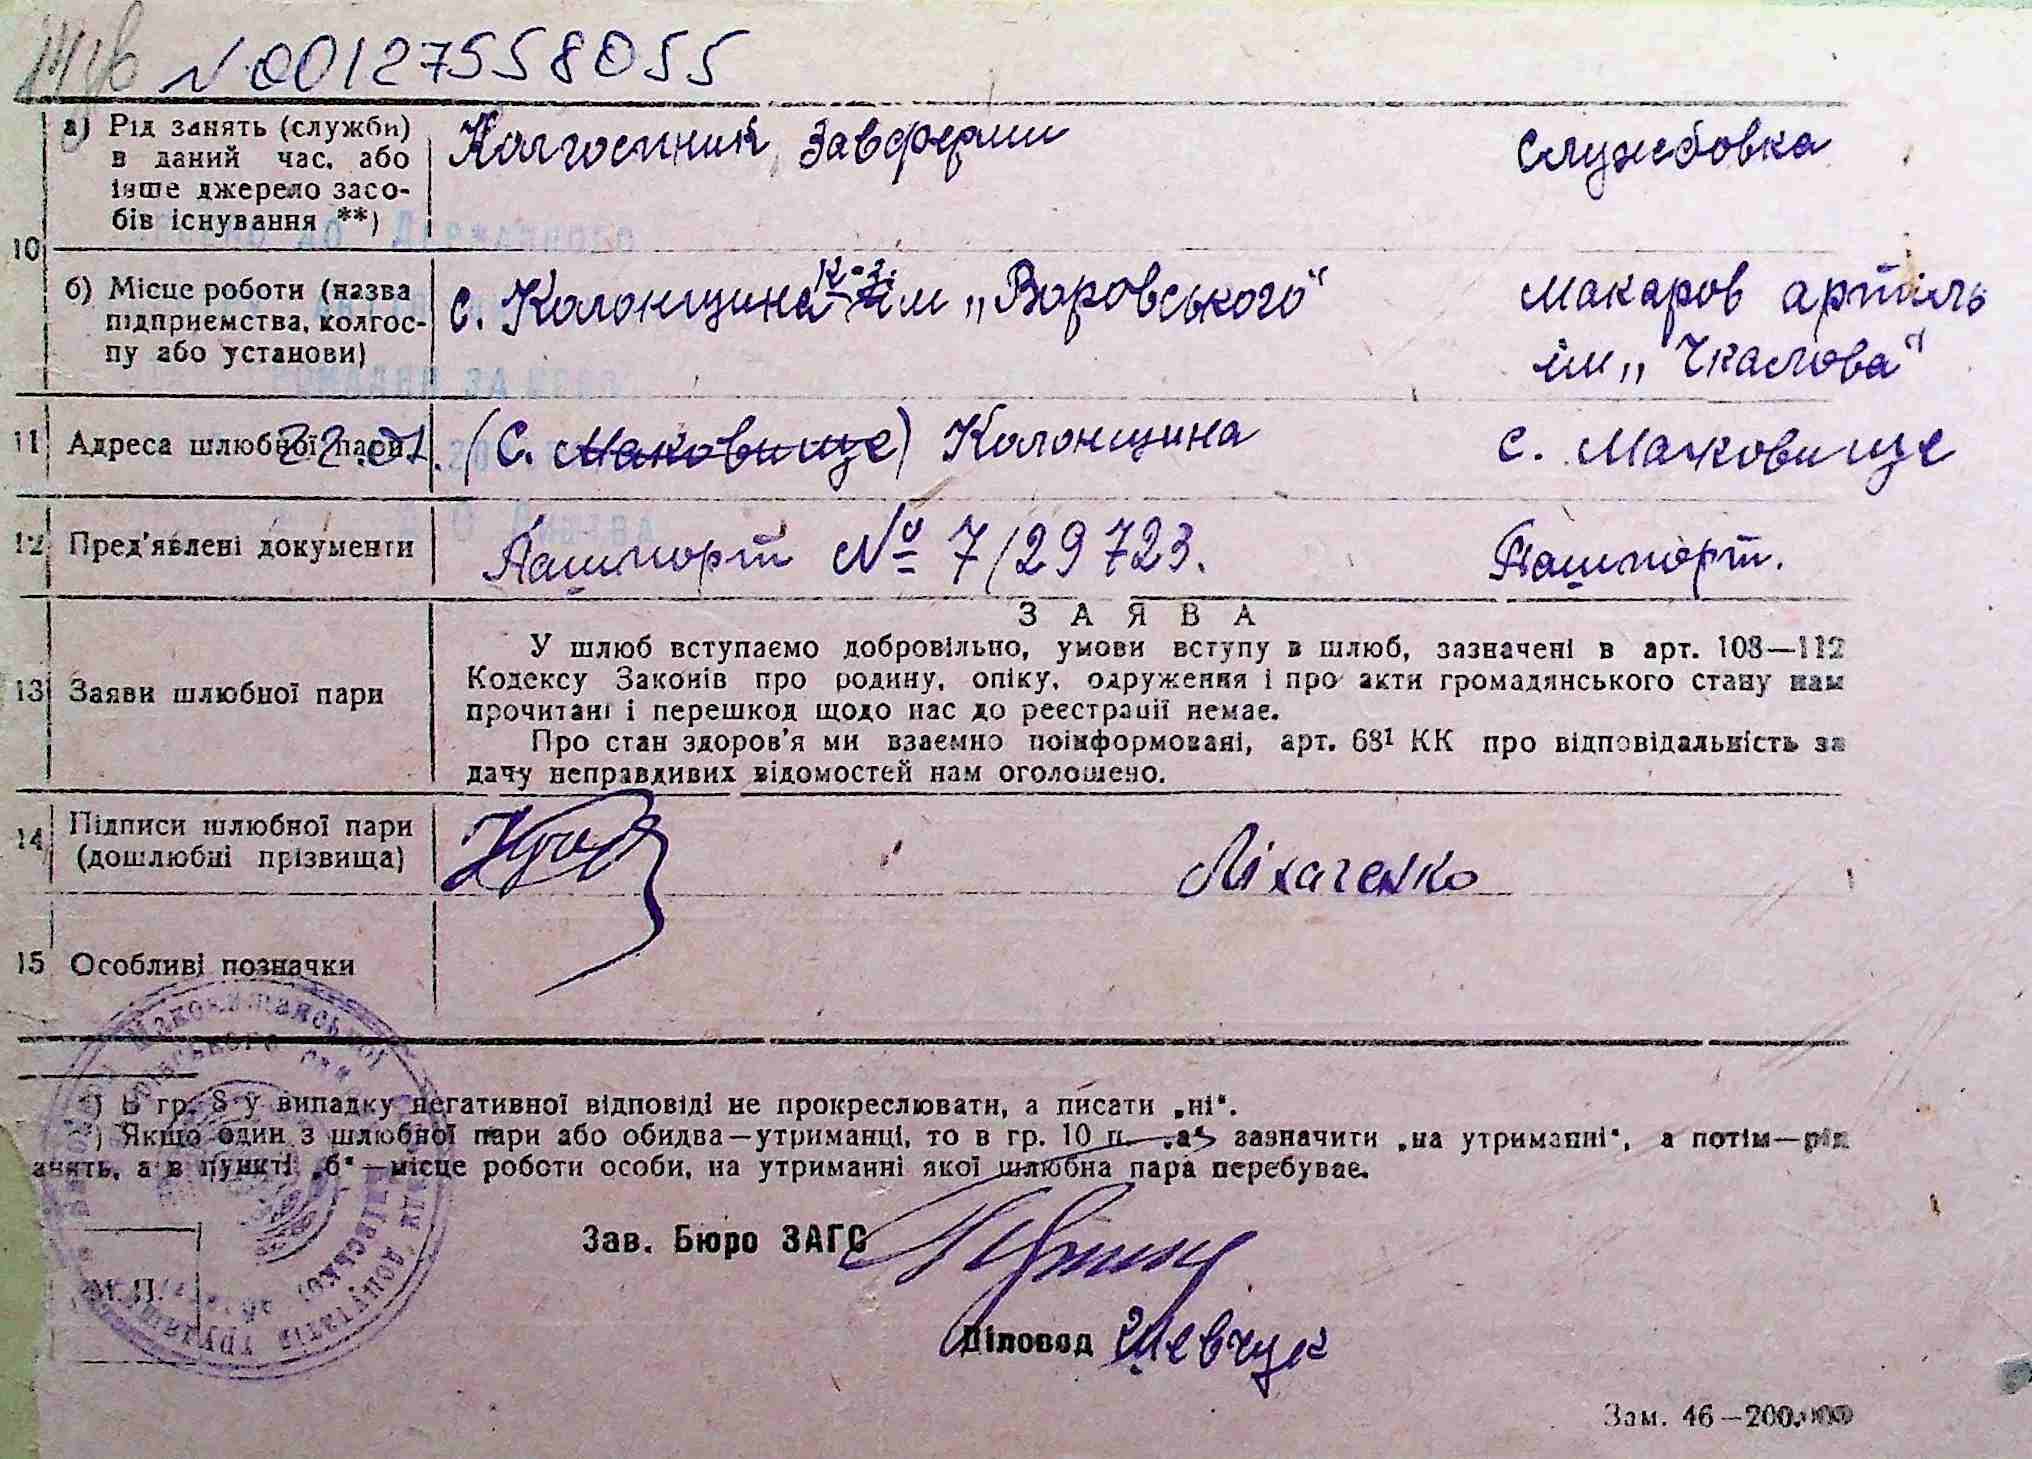 N 00127558055
а) Рід занять (служби)
в даний час, або
інше джерело засо-
бів існування **)
Колгоспник, Завферми
Службовка
10
б) Місце роботи (назва
підприємства, колгос-
пу або установи)
с. Колонщина к-з. ім „Воровського"
Макаров артіль
ім „Чкалова"
11 Адреса шлюбної пари
22.01.
(с. Маковище) Колонщина
с. Маковище
12 Пред'явлені документи
Пашпорт № 7/29723.
Пашпорт.
13 Заяви шлюбної пари
ЗАЯВА
У шлюб вступаємо добровільно, умови вступу в шлюб, зазначені в арт. 108—112
Кодексу Законів про родину, опіку, одруження і про акти громадянського стану нам
прочитані і перешкод щодо нас до реєстрації немає.
Про стан здоров'я ми взаємно поінформовані, арт. 68¹ КК про відповідальність за
дачу неправдивих відомостей нам оголошено.
14 Підписи шлюбної пари
(дошлюбні прізвища)
Ліхаченко
15 Особливі позначки
*) В гр. 8 у випадку негативної відповіді не прокреслювати, а писати „ні".
**) Якщо один з шлюбної пари або обидва—утриманці, то в гр. 10 п. „а" зазначити „на утриманні", а потім—рід
анять, а в пункті „б"—місце роботи особи, на утриманні якої шлюбна пара перебуває.
Зав. Бюро ЗАГС
М. П.
Діловод Шевчук
Зам. 46—200.000